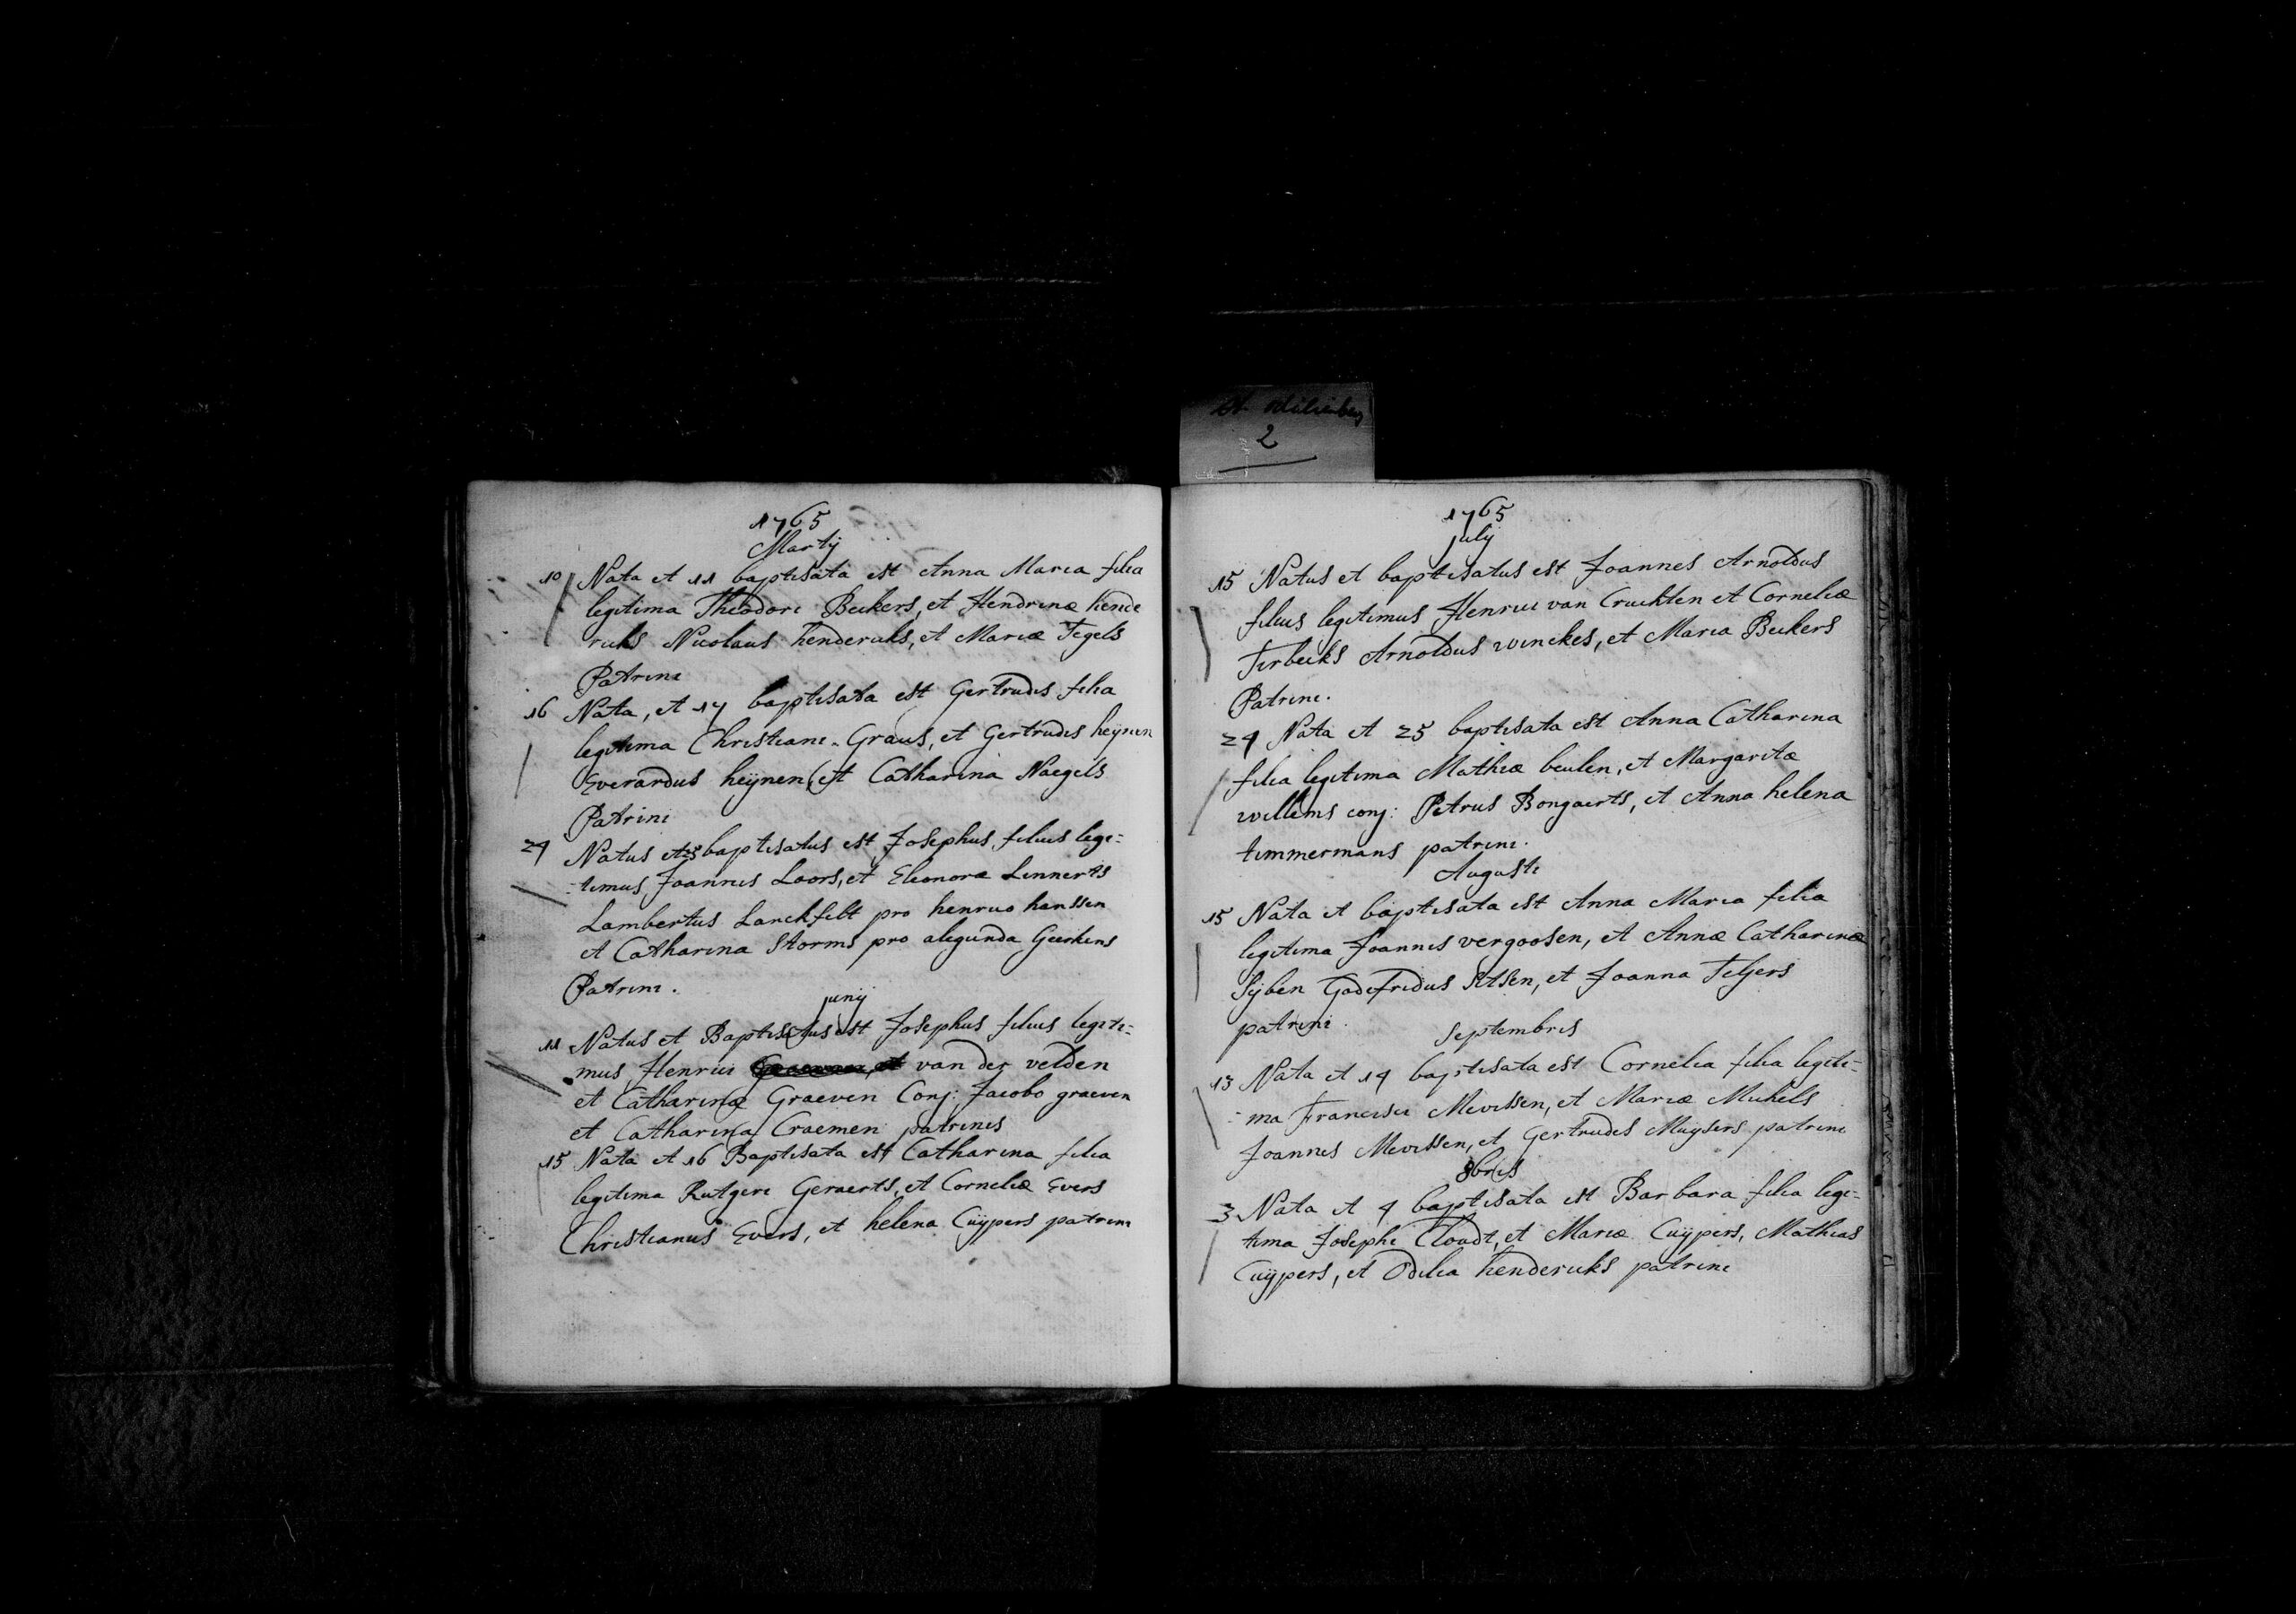 St. odilienberg
2
1765
Martij
10 Nata et 11 baptisata est Anna Maria filia
legitima Theodori Beckers, et Hendrinæ hende
ricks Nicolaus hendericks, et Mariæ Tegels
Patrini
16 Nata, et 17 baptisata est Gertrudis filia
legitima Christiani Graus, et Gertrudis heijnen
Everardus heijnen, et Catharina Naegels
Patrini
24 Natus et 25 baptisatus est Josephus filius legi=
=timus Joannis Loors, et Eleonoræ Linnerts
Lambertus Lanckfelt pro henrico hanssen
et Catharina Storms pro alegunda Geerkens
Patrini.
junij
11 Natus et Baptisatus est Josephus filius legiti=
mus Henrici van der velden
et Catharinæ Graeven Conj: Jacobo graeven
et Catharina Craemen patrinis
15 Nata et 16 Baptisata est Catharina filia
legitima Rutgeri Geraerts, et Corneliæ Evers
Christianus Evers, et helena Cuÿpers patrini
1765
julij
15 Natus et baptisatus est Joannes Arnoldus
filius legitimus Henrici van Cruchten et Corneliæ
Tirbecks Arnoldus winckes, et Maria Beckers
Patrini.
24 Nata et 25 baptisata est Anna Catharina
filia legitima Mathiæ beulen, et Margaritæ
willems conj: Petrus Bongaerts, et Anna helena
timmermans patrini.
Augusti
15 Nata et baptisata est Anna Maria filia
legitima Joannis vergoosen, et Annæ Catharinæ
Sijben Godefridus Sitsen, et Joanna Teljers
patrini.
Septembris
13 Nata et 14 baptisata est Cornelia filia legiti=
=ma Francisci Mevissen, et Mariæ Michels
Joannes Mevissen, et Gertrudis Muysers patrini
8bris
3 Nata et 4 baptisata est Barbara filia legi=
tima Josephi Cloudt, et Mariæ Cuÿpers, Mathias
Cuÿpers, et Odilia hendericks patrini